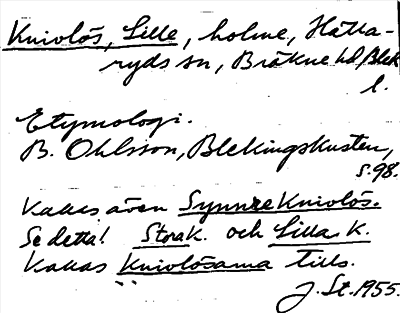 Knivlös, Lille, holme, Hälla-
ryds sn, Bräkne hd, Blek
l.
Etymologi.
B. Ohlsson, Blekingskusten,
s. 98.
Kallas även Synnre Knivlös.
Se detta! Stora K. och Lilla K.
kallas Knivlösarna tills.
J. St. 1955.